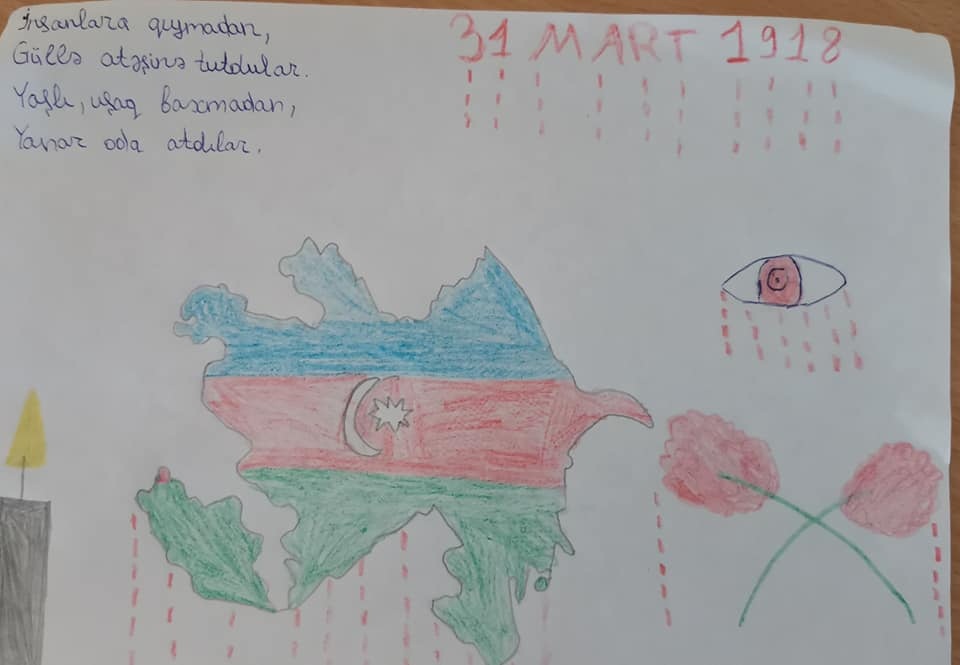 İnsanlara qıymadan,
Güllə atəşinə tutdular.
Yaşlı, uşaq baxmadan,
Yanar oda atdılar.
31 MART 1918